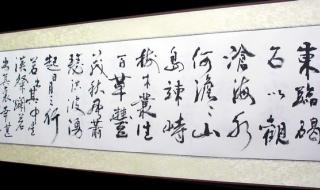 東臨碣
石以觀
滄海水
何澹々山
島竦峙
樹木叢生
百草豐
茂秋風蕭
瑟洪波湧
起日月之行
若其中星
漢燦爛若
出其裏幸甚